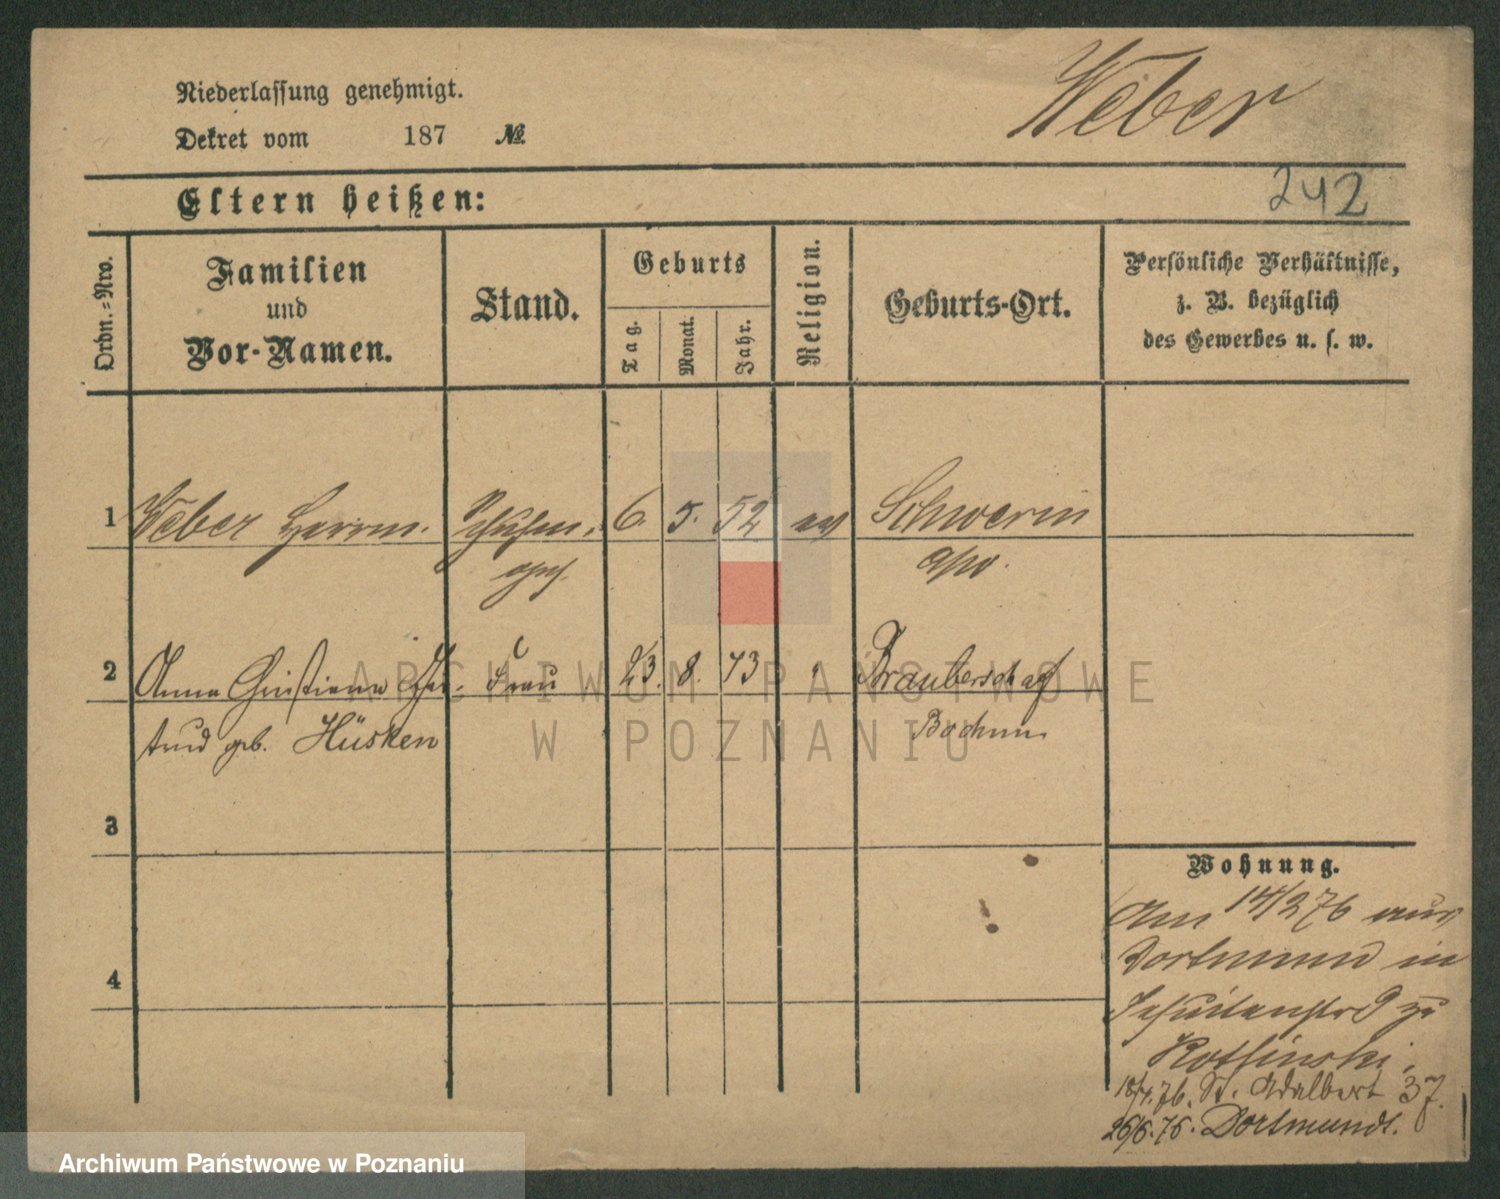 Niederlassung genehmigt.
Weber
Dekret vom 187 №
Eltern heißen:
242
Ordn.-Nro.
Familien
und
Vor-Namen.
Stand.
Geburts
Tag.
Monat.
Jahr.
Religion.
Geburts-Ort.
Persönliche Verhältnisse,
z. B. bezüglich
des Gewerbes u. s. w.
1 Weber Herrm. 6. 5. 52 ev Schwerin
2 Anna Christiana Ger- Frau 23. 8. 73 Braubersch
trud geb. Hüsken Bochum
3
4
Wohnung.
Am 14/2 76 aus
Dortmund in
Jesuitenstr 9 zu
Kotlinski.
18/4.76. St. Adalbert 37.
26/6.76. Dortmund.
ARCHIWUM PAŃSTWOWE
W POZNANIU
Archiwum Państwowe w Poznaniu